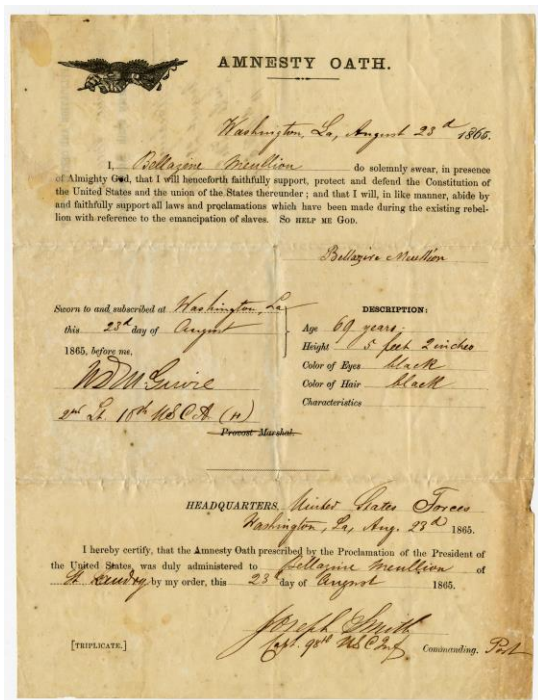 AMNESTY OATH.
Washington, La, August 23d 1865.
I, Bellazire Meullion do solemnly swear, in presence
of Almighty God, that I will henceforth faithfully support, protect and defend the Constitution of
the United States and the union of the States thereunder; and that I will, in like manner, abide by
and faithfully support all laws and proclamations which have been made during the existing rebel-
lion with reference to the emancipation of slaves. SO HELP ME GOD.
Bellazire Meullion
Sworn to and subscribed at Washington, La
this 23d day of August
1865, before me,
McGuire
2nd Lt. 10th U S C A (H)
Provost Marshal.
DESCRIPTION:
Age 69 years;
Height 5 feet 2 inches
Color of Eyes black
Color of Hair black
Characteristics
HEADQUARTERS, United States Forces
Washington, La, Aug. 23d 1865.
I hereby certify, that the Amnesty Oath prescribed by the Proclamation of the President of
the United States, was duly administered to Bellazire Meullion of
St Landry by my order, this 23d day of August 1865.
Joseph Smith
Capt. 98th U S C Inf Commanding. Post
[TRIPLICATE.]